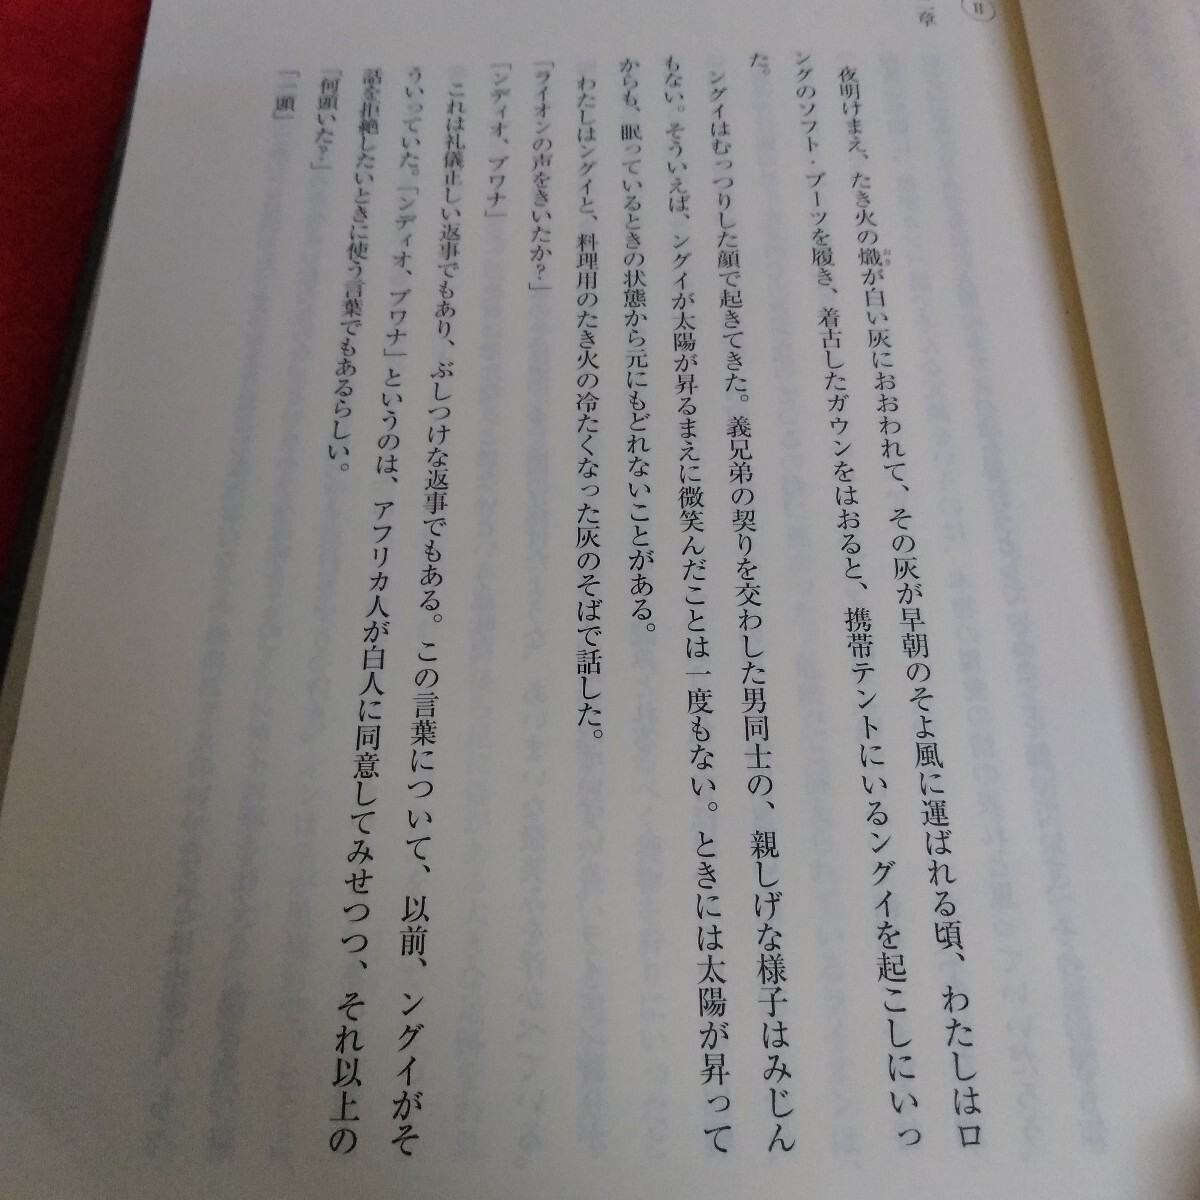 章
11
夜明けまえ、たき火の熾が白い灰におおわれて、その灰が早朝のそよ風に運ばれる頃、わたしはロ
おき
ングのソフト・ブーツを履き、着古したガウンをはおると、携帯テントにいるングイを起こしにいっ
た。
ングイはむっつりした顔で起きてきた。義兄弟の契りを交わした男同士の、親しげな様子はみじん
もない。そういえば、ングイが太陽が昇るまえに微笑んだことは一度もない。ときには太陽が昇って
からも、眠っているときの状態から元にもどれないことがある。
わたしはングイと、料理用のたき火の冷たくなった灰のそばで話した。
「ライオンの声をきいたか？」
「ンディオ、ブワナ」
これは礼儀正しい返事でもあり、ぶしつけな返事でもある。この言葉について、以前、ングイがそ
ういっていた。「ンディオ、ブワナ」というのは、アフリカ人が白人に同意してみせつつ、それ以上の
話を拒絶したいときに使う言葉でもあるらしい。
「何頭いた？」
「一頭」